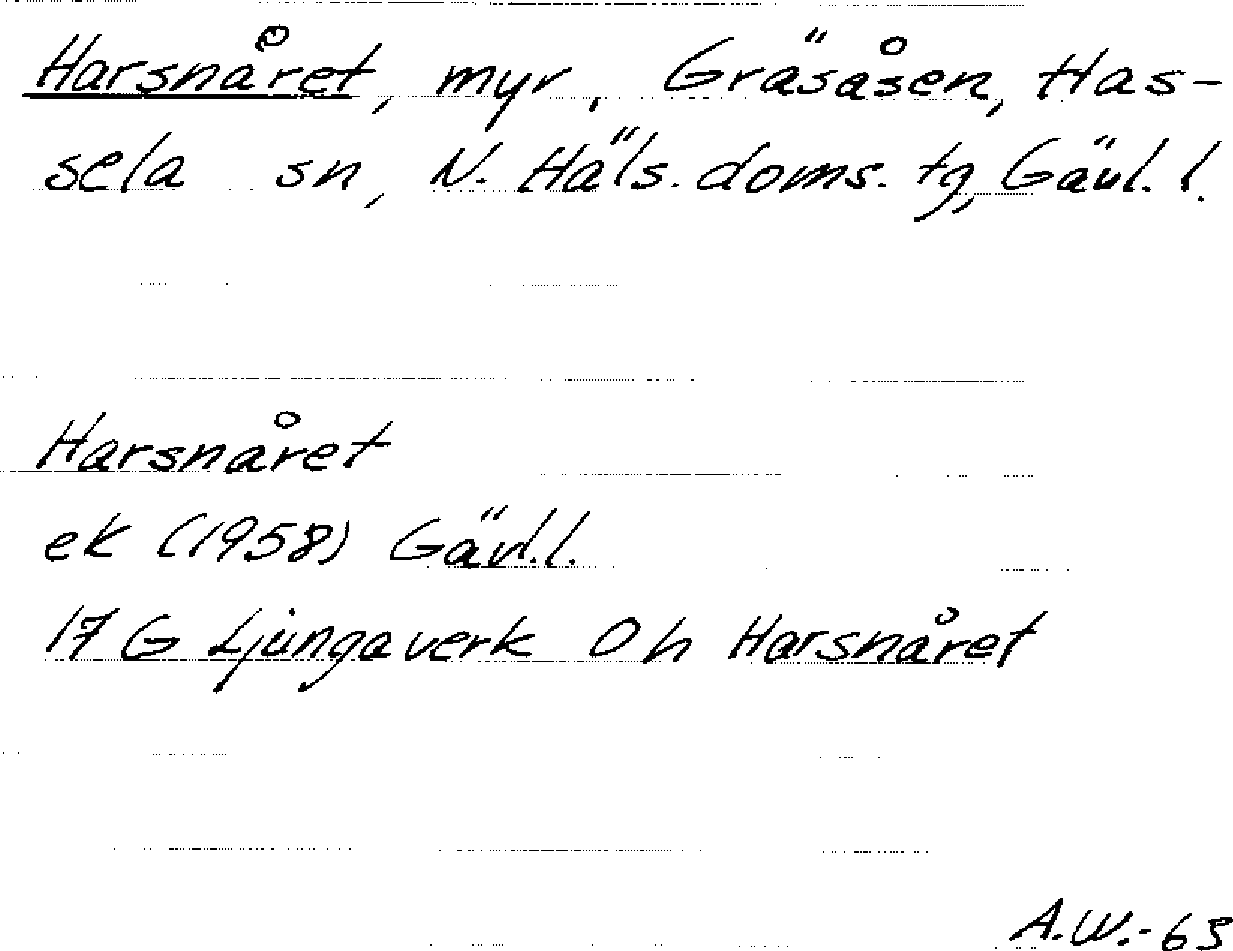 Harsnåret, myr, Gräsåsen, Has-
sela sn, N. Häls. doms. tg, Gävl. l.
Harsnåret
ek (1958) Gävl. l.
17 G Ljungaverk 0 h Harsnåret
A.W.-63